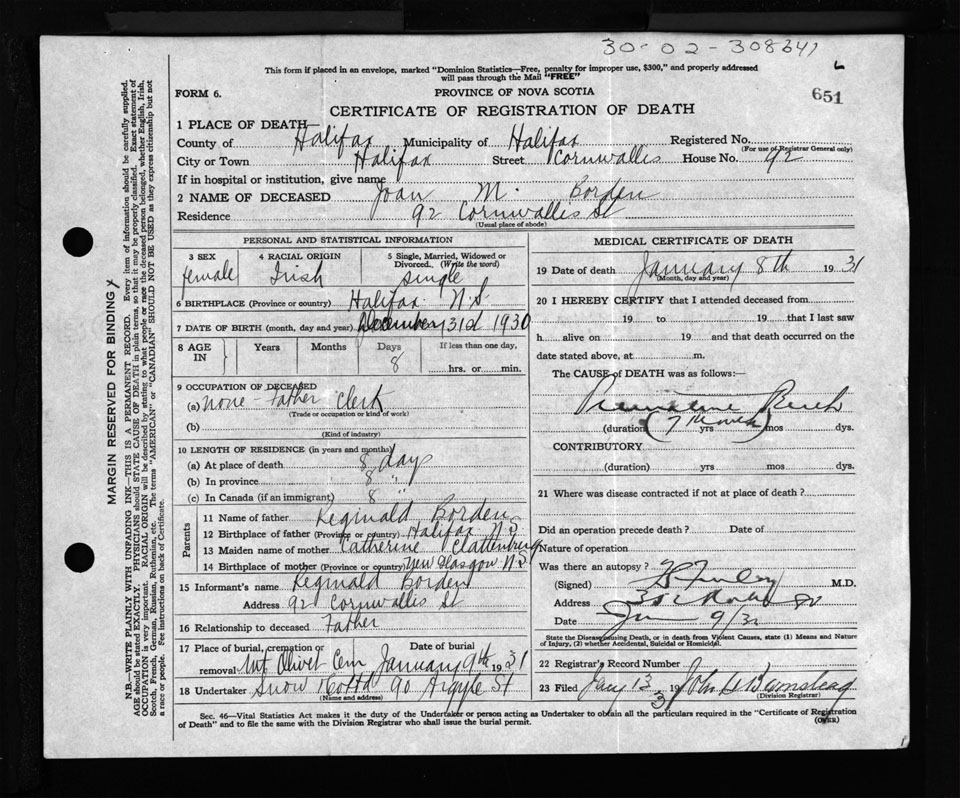 30-02-308341
This form if placed in an envelope, marked "Dominion Statistics—Free, penalty for improper use, $300," and properly addressed
will pass through the Mail "FREE"
FORM 6.
PROVINCE OF NOVA SCOTIA
651
CERTIFICATE OF REGISTRATION OF DEATH
1 PLACE OF DEATH—
County of Halifax Municipality of Halifax Registered No.
(For use of Registrar General only)
City or Town Halifax Street Cornwallis House No. 92
If in hospital or institution, give name
2 NAME OF DECEASED Joan M. Borden
Residence 92 Cornwallis St
(Usual place of abode)
PERSONAL AND STATISTICAL INFORMATION
3 SEX 4 RACIAL ORIGIN 5 Single, Married, Widowed or
Divorced. (Write the word)
female Irish single
6 BIRTHPLACE (Province or country) Halifax N.S.
7 DATE OF BIRTH (month, day and year) December 31st 1930
8 AGE IN Years Months Days If less than one day,
8 hrs. or min.
9 OCCUPATION OF DECEASED
(a) none - Father Clerk
(Trade or occupation or kind of work)
(b)
(Kind of industry)
10 LENGTH OF RESIDENCE (in years and months)
(a) At place of death 8 days
(b) In province 8 "
(c) In Canada (if an immigrant) 8 "
Parents
11 Name of father Reginald Borden
12 Birthplace of father (Province or country) Halifax N.S.
13 Maiden name of mother Catherine Clattenburg
14 Birthplace of mother (Province or country) New Glasgow N.S
15 Informant's name Reginald Borden
Address 92 Cornwallis St
16 Relationship to deceased Father
17 Place of burial, cremation or Date of burial
removal Mt Olivet Cem January 9th 1931
18 Undertaker Snow & Co Ltd 90 Argyle St
(Name and address)
MEDICAL CERTIFICATE OF DEATH
19 Date of death January 8th 1931
(Month, day and year)
20 I HEREBY CERTIFY that I attended deceased from
19 to 19 that I last saw
h alive on 19 and that death occurred on the
date stated above, at m.
The CAUSE of DEATH was as follows:—
Premature Birth
(duration) (7 months) yrs mos dys.
CONTRIBUTORY
(duration) yrs mos dys.
21 Where was disease contracted if not at place of death?
Did an operation precede death? Date of
Nature of operation
Was there an autopsy?
(Signed) M.D.
Address
Date Jan 9/31
State the Disease causing Death, or in death from Violent Causes, state (1) Means and Nature
of Injury, (2) whether Accidental, Suicidal or Homicidal.
22 Registrar's Record Number
23 Filed Jany 13 1931 John
(Division Registrar)
Sec. 46—Vital Statistics Act makes it the duty of the Undertaker or person acting as Undertaker to obtain all the particulars required in the "Certificate of Registration
of Death" and to file the same with the Division Registrar who shall issue the burial permit.
(OVER)
MARGIN RESERVED FOR BINDING
N.B.—WRITE PLAINLY WITH UNFADING INK—THIS IS A PERMANENT RECORD. Every item of information should be carefully supplied.
AGE should be stated EXACTLY. PHYSICIANS should STATE CAUSE OF DEATH in plain terms, so that it may be properly classified. Exact statement of
OCCUPATION is very important. RACIAL ORIGIN will be described by stating to what people or race the deceased person belonged, whether English, Irish,
Scotch, French, German, Russian, Ruthenian, etc. The terms "AMERICAN" or "CANADIAN" SHOULD NOT BE USED as they express citizenship but not
a race or people. See instructions on back of Certificate.